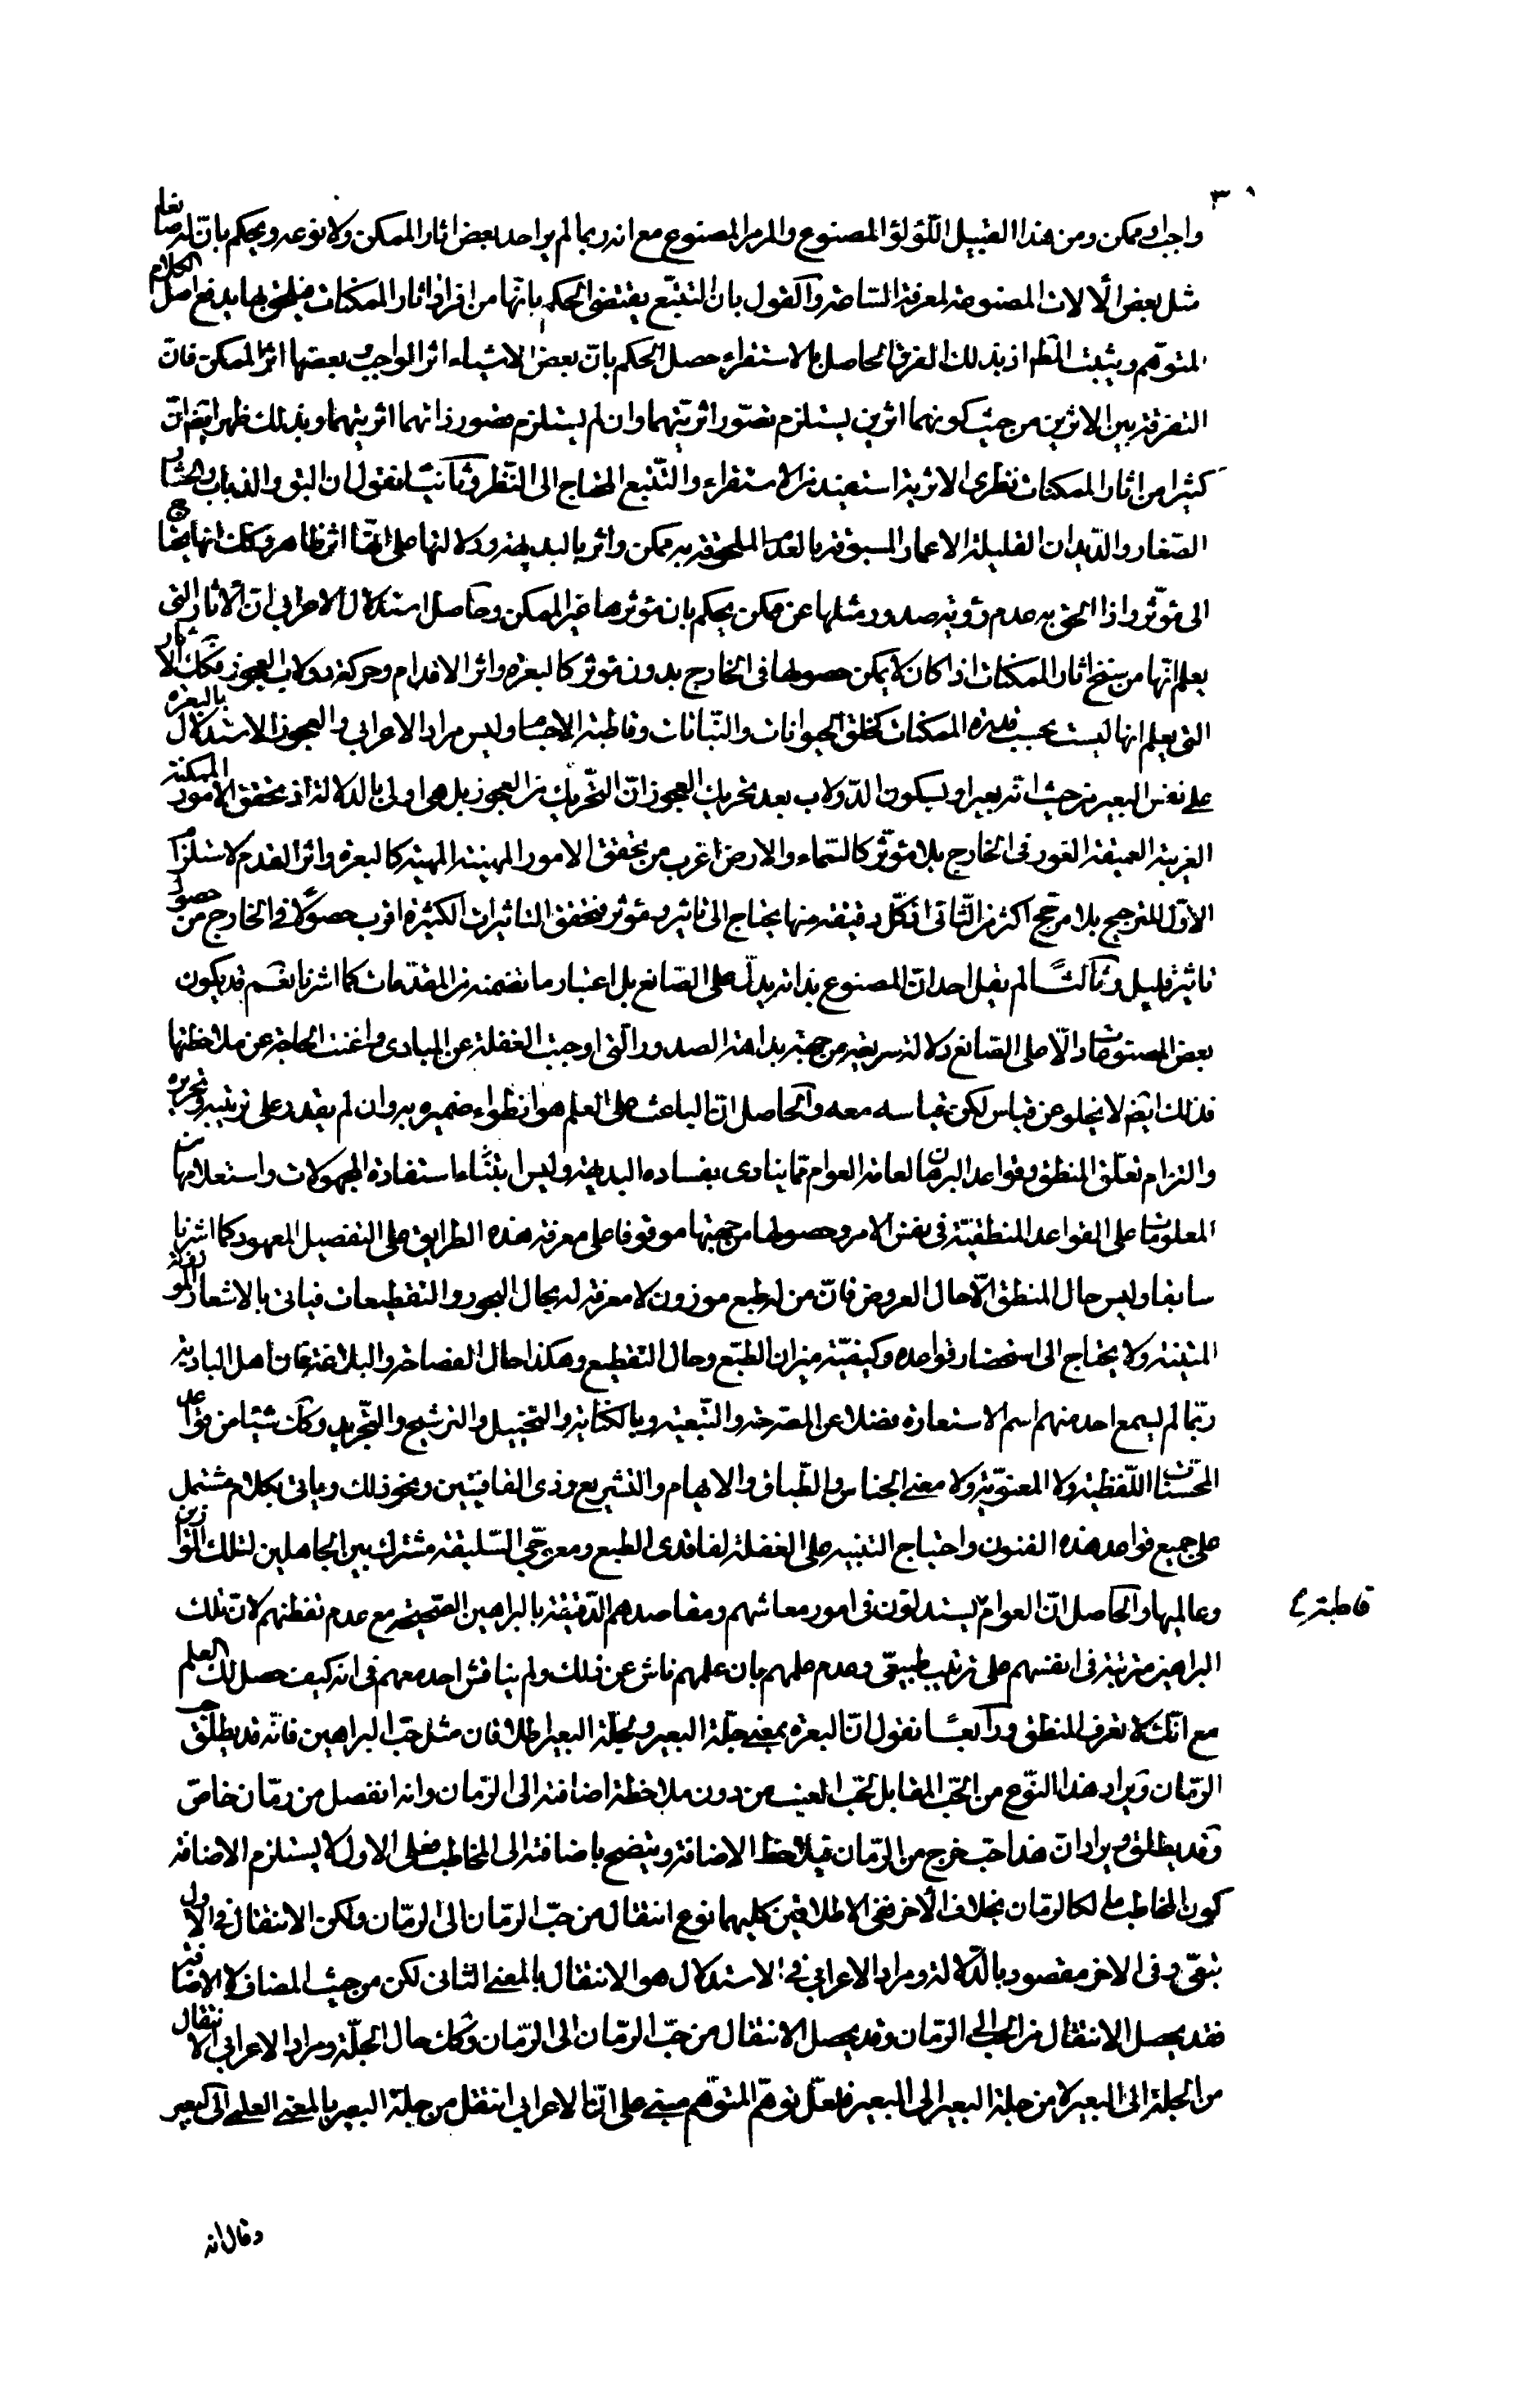 ٣
واجب او ممكن ومن هذا القبيل اللؤلؤ المصنوع والمرمر المصنوع مع انه ربما لم ير احد بعض اثار الممكن ولا نوعه ويحكم بان له صانعا
مثل بعض الالات المصنوعة لمعرفة الساعة والقول بان التتبع يقتضى الحكم بانها من افراد اثار الممكنات فيلحق بها يدفع اصل الكلام
المتوهم ويثبت المط اذ بذلك الفرق الحاصل بالاستقراء حصل الحكم بان بعض الاشياء اثر الواجب وبعضها اثر الممكن فان
التفرقة بين الاثرين من حيث كونهما اثرين يستلزم تصور اثريتهما وان لم يستلزم تصور ذاتهما اثريتهما وبذلك ظهر ايضا ان
كثيرا من اثار الممكنات نظرى الاثرية استفيد من الاستقراء والتتبع المحتاج الى النظر وثانيا نقول ان البق والذباب والحشار
الصغار والديدان القليلة الاعمار المسبوقة بالعدم الملحوقة به ممكن واثر بالبديهة ودلالتها على انها اثر ظاهر وكذلك انها يحتاج
الى مؤثر واذا الحق به عدم رؤية صدور مثلها عن ممكن يحكم بان مؤثرها غير الممكن وحاصل استدلال الاعرابى ان الاثار التى
يعلم انها من سنخ اثار الممكنات اذا كان لا يمكن حصولها فى الخارج بدون مؤثر كالبعرة واثر الاقدام وحركة دولاب العجوز فكذلك الاثار
التى يعلم انها ليست بحسب قدرة الممكنات كخلق الحيوانات والنباتات وقاطبة الاجسام وليس مراد الاعرابى والعجوز الاستدلال بالبعرة
على نفس البعير من حيث انه بعير او بسكون الدولاب بعد تحريك العجوز ان التحريك من العجوز بل هى اولى بالدلالة اذ تحقق الامور الممكنة
الغريبة العميقة الغور فى الخارج بلا مؤثر كالسماء والارض اغرب من تحقق الامور المهينة كالبعرة واثر القدم لاستلزام
الاول الترجيح بلا مرجح اكثر من الثانى اذ كل دقيقة منها يحتاج الى تاثير ومؤثر فتحقق التاثيرات الكثيرة اقرب حصولا فى الخارج من حصول
تاثير قليل وثالثا لم يقل احد ان المصنوع بذاته يدل على الصانع بل اعتبار ما تضمنه من المقدمات كما اشرنا نعم قد يكون
بعض المصنوعات دالا على الصانع دلالة سريعة من جهة بداهة الصدور التى اوجبت الغفلة عن المبادى واغنت الحاجة عن ملاحظتها
فذلك ايضا لا يخلو عن قياس لكن قياسه معه والحاصل ان الباعث على العلم هو انطواء ضميره به وان لم يقدر على ترتيبه وتحريره
والتزام تعلق المنطق وقواعد البرهان لعامة العوام مما ينادى بفساده البديهة وليس ابتناء استفادة المجهولات واستعلامها من
المعلومات على القواعد المنطقية فى نفس الامر وحصولها من جهتها موقوفا على معرفة هذه الطرايق على التفصيل المعهود كما اشرنا
سابقا وليس حال المنطق الا حال العروض فان من له طبع موزون لا معرفة له بحال البحور والتقطيعات فياتى بالاشعار الموزونة
المتينة ولا يحتاج الى استحضار قواعده وكيفية ميزان الطبع وحال التقطيع وهكذا حال الفصاحة والبلاغة فان اهل البادية
ربما لم يسمع احد منهم اسم الاستعارة فضلا عن المصرحة والتبعية وبالكناية والتخييل والترشيح والتجريد وكذلك شيئا من قواعد
المحسنات اللفظية ولا المعنوية ولا معنى الجناس والطباق والايهام والتشريع وذى القافيتين ونحو ذلك وياتى بكلام مشتمل
على جميع قواعد هذه الفنون واحتياج التنبيه على الغفلة لفاقدى الطبع ومعوجى السليقة مشترك بين الجاهلين لتلك الموازين
وعالميها والحاصل ان العوام يستدلون فى امور معاشهم ومقاصدهم الدقيقة بالبراهين الصحيحة مع عدم تفطنهم لان تلك
قاطبة
البراهين مترتبة فى انفسهم على ترتيب طبيعى وعدم علمهم بان علمهم ناش عن ذلك ولم يناقش احد معهم فى انه كيف حصل لك العلم
مع انك لا تعرف المنطق ورابعا نقول ان البعرة بمعنى جلة البعير وجلة البعير اطلاقان مثل حب البراهين فانه قد يطلق حب
الرمان ويراد هذا النوع من الحب المقابل لحب العنب من دون ملاحظة اضافته الى الرمان وانه انفصل من رمان خاص
وقد يطلق ويراد ان هذا حب خرج من الرمان فيلاحظ الاضافة ويتضح باضافته الى المخاطب فعلى الاول لا يستلزم الاضافة
كون المخاطب مالكا لرمان بخلاف الاخر ففى الاطلاقين كليهما نوع انتقال من حب الرمان الى الرمان ولكن الانتقال فى الاول
تبعى وفى الاخر مقصود بالدلالة ومراد الاعرابى فى الاستدلال هو الانتقال بالمعنى الثانى لكن من حيث المضاف لا الاضافة
فقد يحصل الانتقال من الحب الى الرمان وقد يحصل الانتقال من حب الرمان الى الرمان وكذلك حال الجلة ومراد الاعرابى الانتقال
من الجلة الى البعير لا من جلة البعير الى البعير فلعل توهم المتوهم مبنى على ان الاعرابى انتقل من جلة البعير بالمعنى العلمى الى البعير
وقال انه